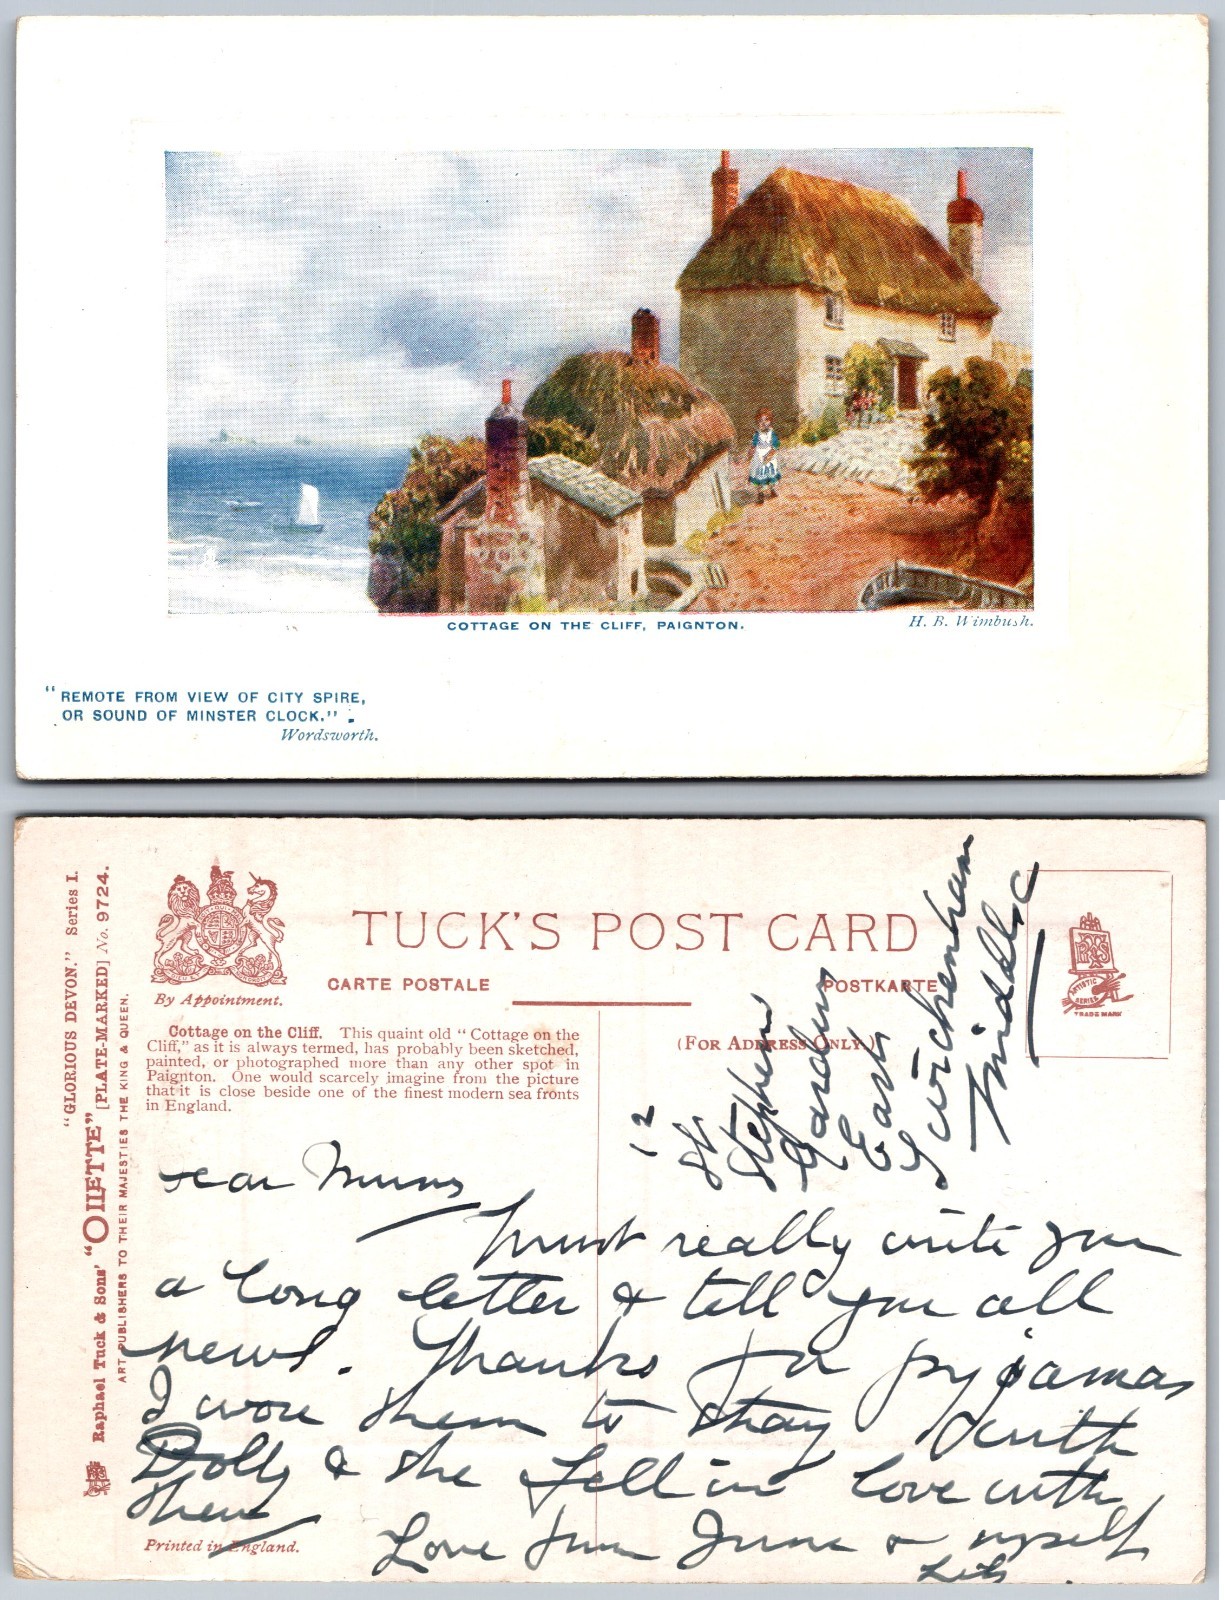 COTTAGE ON THE CLIFF, PAIGNTON.
H. B. Wimbush.
"REMOTE FROM VIEW OF CITY SPIRE,
OR SOUND OF MINSTER CLOCK."
Wordsworth.
"GLORIOUS DEVON." Series I.
Raphael Tuck & Sons' "OILETTE" [PLATE-MARKED] No. 9724.
ART PUBLISHERS TO THEIR MAJESTIES THE KING & QUEEN.
By Appointment.
TUCK'S POST CARD
CARTE POSTALE
POSTKARTE
(FOR ADDRESS ONLY.)
ARTISTIC
SERIES
TRADE MARK
Cottage on the Cliff. This quaint old "Cottage on the
Cliff," as it is always termed, has probably been sketched,
painted, or photographed more than any other spot in
Paignton. One would scarcely imagine from the picture
that it is close beside one of the finest modern sea fronts
in England.
12
St
Stephens
Gardens
East
Twickenham
Middlsc
Dear Mums
I must really write you
a long letter & tell you all
news. Thanks for pyjamas
I wore them to stay with
Dolly & she fell in love with
them
Love from June & myself
Printed in England.